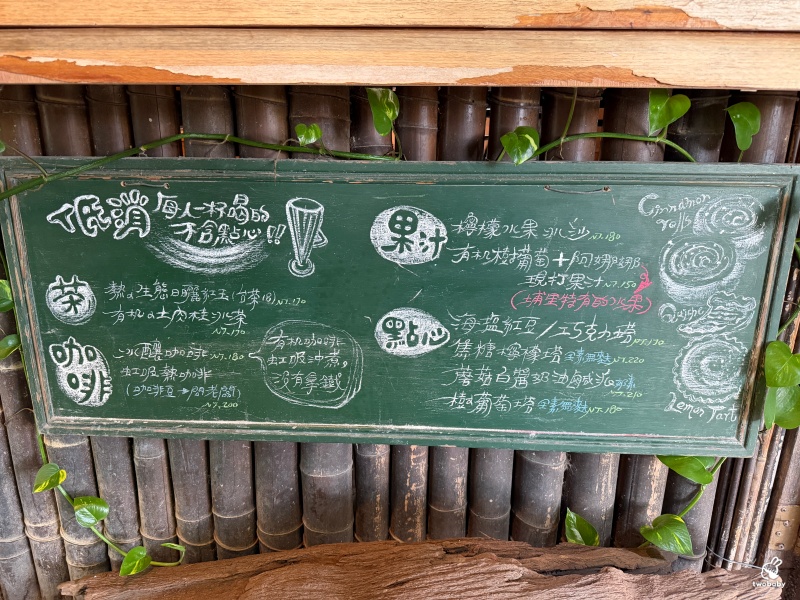 低消 每人一杯喝的
不含點心!!
茶
熱の生態日曬紅玉(台茶18) NT.170
有机の土肉桂冰茶
NT.170
咖啡
冰釀咖啡 NT.180
虹吸熱咖啡
(咖啡豆→問老闆)
NT.200
有机咖啡
虹吸沖煮,
沒有拿鐵
果汁
檸檬冰果冰沙 NT.180
有机樹葡萄+阿娜娜
現打果汁 NT.150
(埔里特有的水果)
點心
海盐紅豆/巧克力塔 NT.150
焦糖檸檬塔 全素無麩 NT.220
蘑菇白醬奶油鹹派 NT.210
樹葡萄塔 全素無麩 NT.180
Cinnamon
rolls
Quiche
Lemon Tart
twobaby